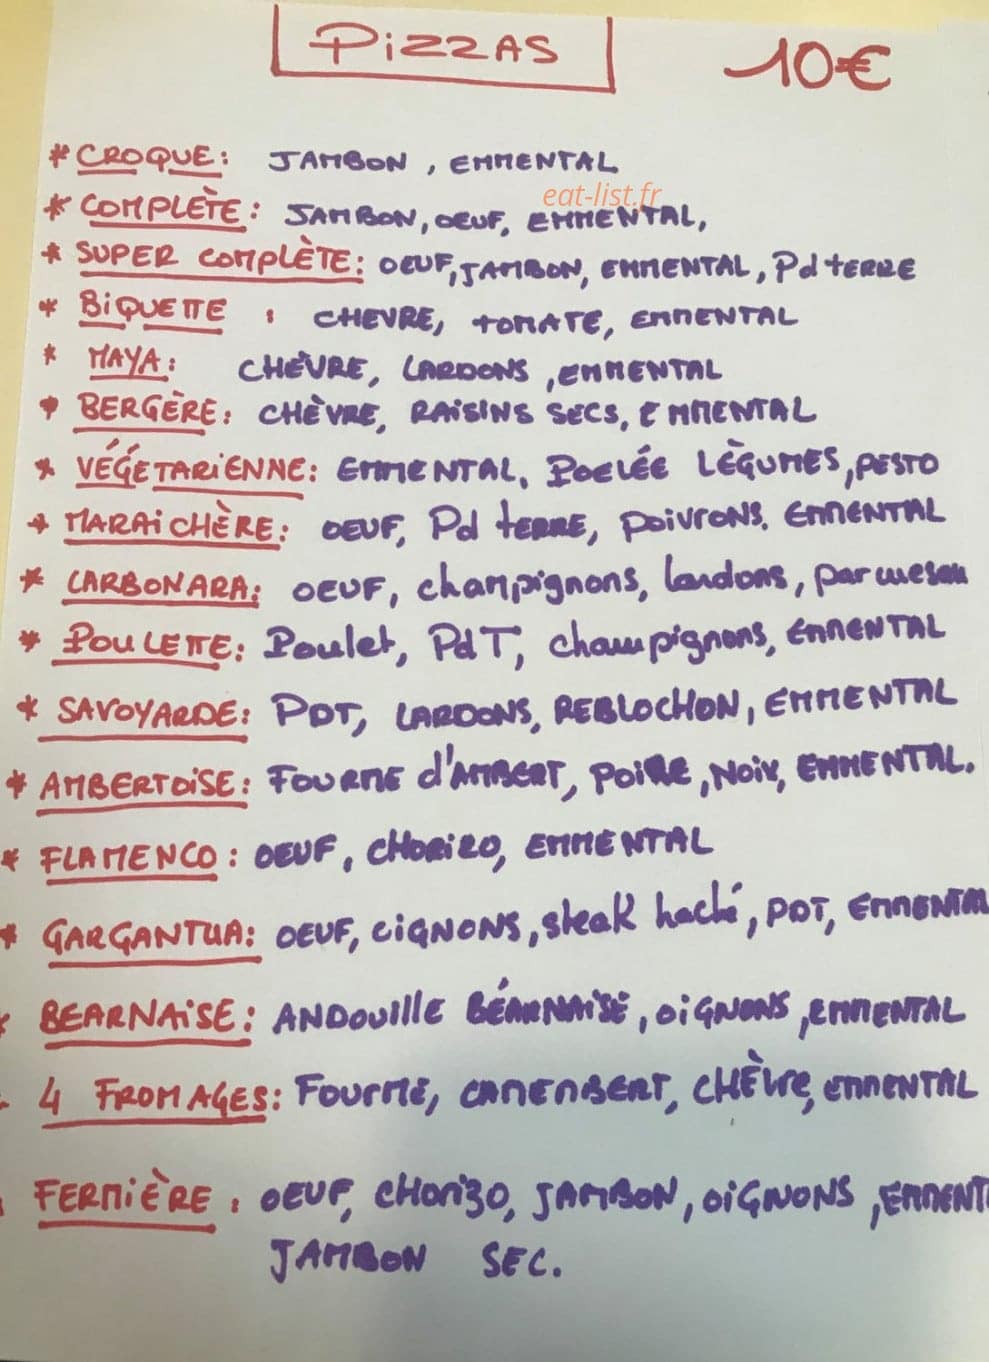 PIZZAS 10€
* CROQUE: JAMBON, EMMENTAL
eat-list.fr
* COMPLÈTE: JAMBON, OEUF, EMMENTAL,
* SUPER COMPLÈTE: OEUF, JAMBON, EMMENTAL, Pd TERRE
* BiQUETTE : CHEVRE, TOMATE, EMMENTAL
* MAYA: CHÈVRE, LARDONS, EMMENTAL
* BERGÈRE: CHÈVRE, RAISINS SECS, EMMENTAL
* VÉGÉTARIENNE: EMMENTAL, POELÉE LÈGUMES, PESTO
* MARAICHÈRE: OEUF, Pd TERRE, POIVRONS, EMMENTAL
* CARBONARA: OEUF, champignons, lardons, parmesan
* POULETTE: Poulet, PdT, champignons, EMMENTAL
* SAVOYARDE: PDT, LARDONS, REBLOCHON, EMMENTAL
* AMBERTOISE: FOURME d'AMBERT, POIRE, NOIX, EMMENTAL.
* FLAMENCO: OEUF, CHORIZO, EMMENTAL
* GARGANTUA: OEUF, OIGNONS, steak haché, PDT, EMMENTAL
* BEARNAISE: ANDOUILLE BÉARNAISE, OIGNONS, EMMENTAL
4 FROMAGES: FOURME, CAMEMBERT, CHÈVRE, EMMENTAL
FERMIÈRE: OEUF, CHORIZO, JAMBON, OIGNONS, EMMENT
JAMBON SEC.